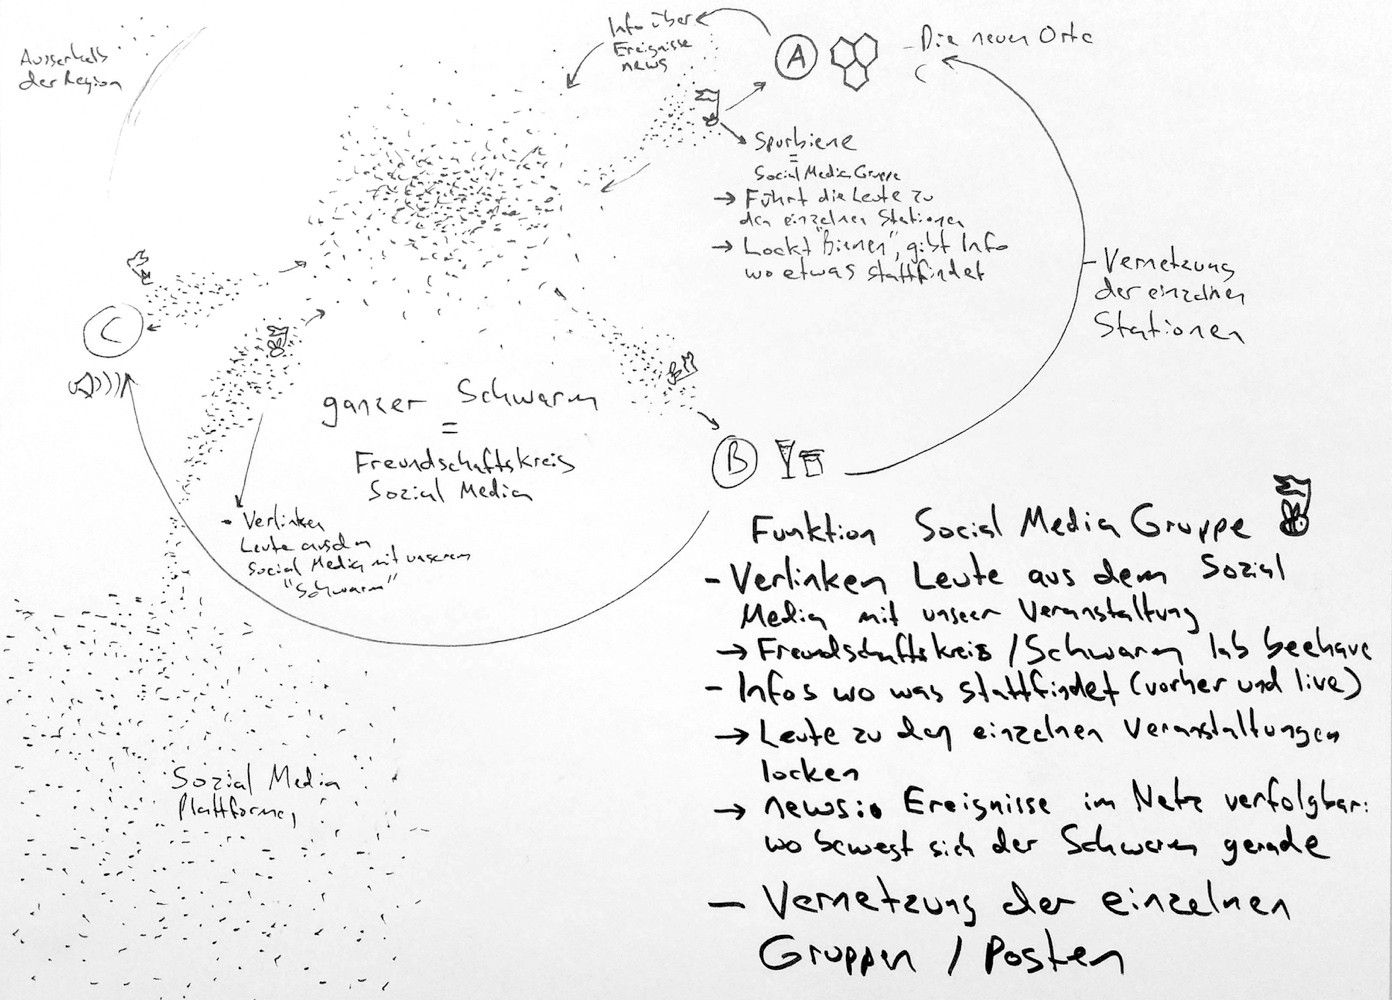 Ausserhalb
der Region
Info über
Ereignisse
news
A
- Die neuen Orte
Spurbiene
=
Social Media Gruppe
→ Führt die Leute zu
den einzelnen Stationen
→ Lockt "Bienen", gibt Info
wo etwas stattfindet
- Vernetzung
der einzelnen
Stationen
C
ganzer Schwarm
=
Freundschaftskreis
Sozial Media
B
- Verlinken
Leute aus dem
Social Media mit unserem
"Schwarm"
Sozial Media
Plattformen
Funktion Social Media Gruppe
- Verlinken Leute aus dem Sozial
Media mit unserer Veranstaltung
→ Freundschaftskreis / Schwarm lab beehave
- Infos wo was stattfindet (vorher und live)
→ Leute zu den einzelnen Veranstaltungen
locken
→ news: Ereignisse im Netz verfolgbar:
wo bewegt sich der Schwarm gerade
- Vernetzung der einzelnen
Gruppen / Posten